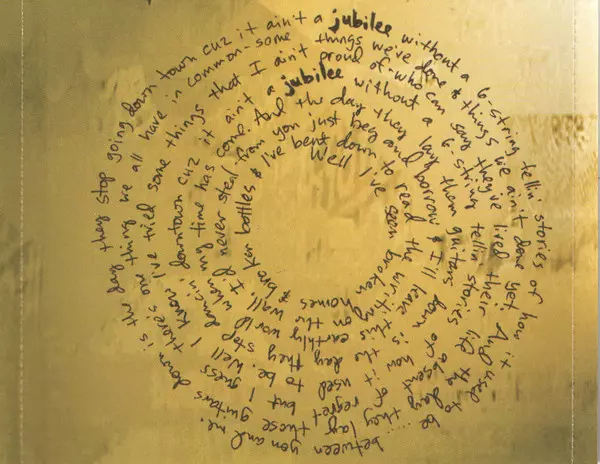 Well I've seen broken homes & broken bottles & I've bent down to read the writing on the wall & I'd never steal from you just beg and borrow & I'll leave this earthly world when my time has come. And the day they lay them guitars down is the day they stop dancin' downtown cuz it ain't a jubilee without a 6-string tellin' stories of how it used to be Well I guess I know I've tried some things that I ain't proud of-who can say they've lived their life absent of regret but there's one thing we all have in common-some things we've done & things we ain't done yet. And the day they lay those guitars down is the day they stop going down town cuz it ain't a jubilee without a 6-string tellin' stories of how it used to be..... between you and me.